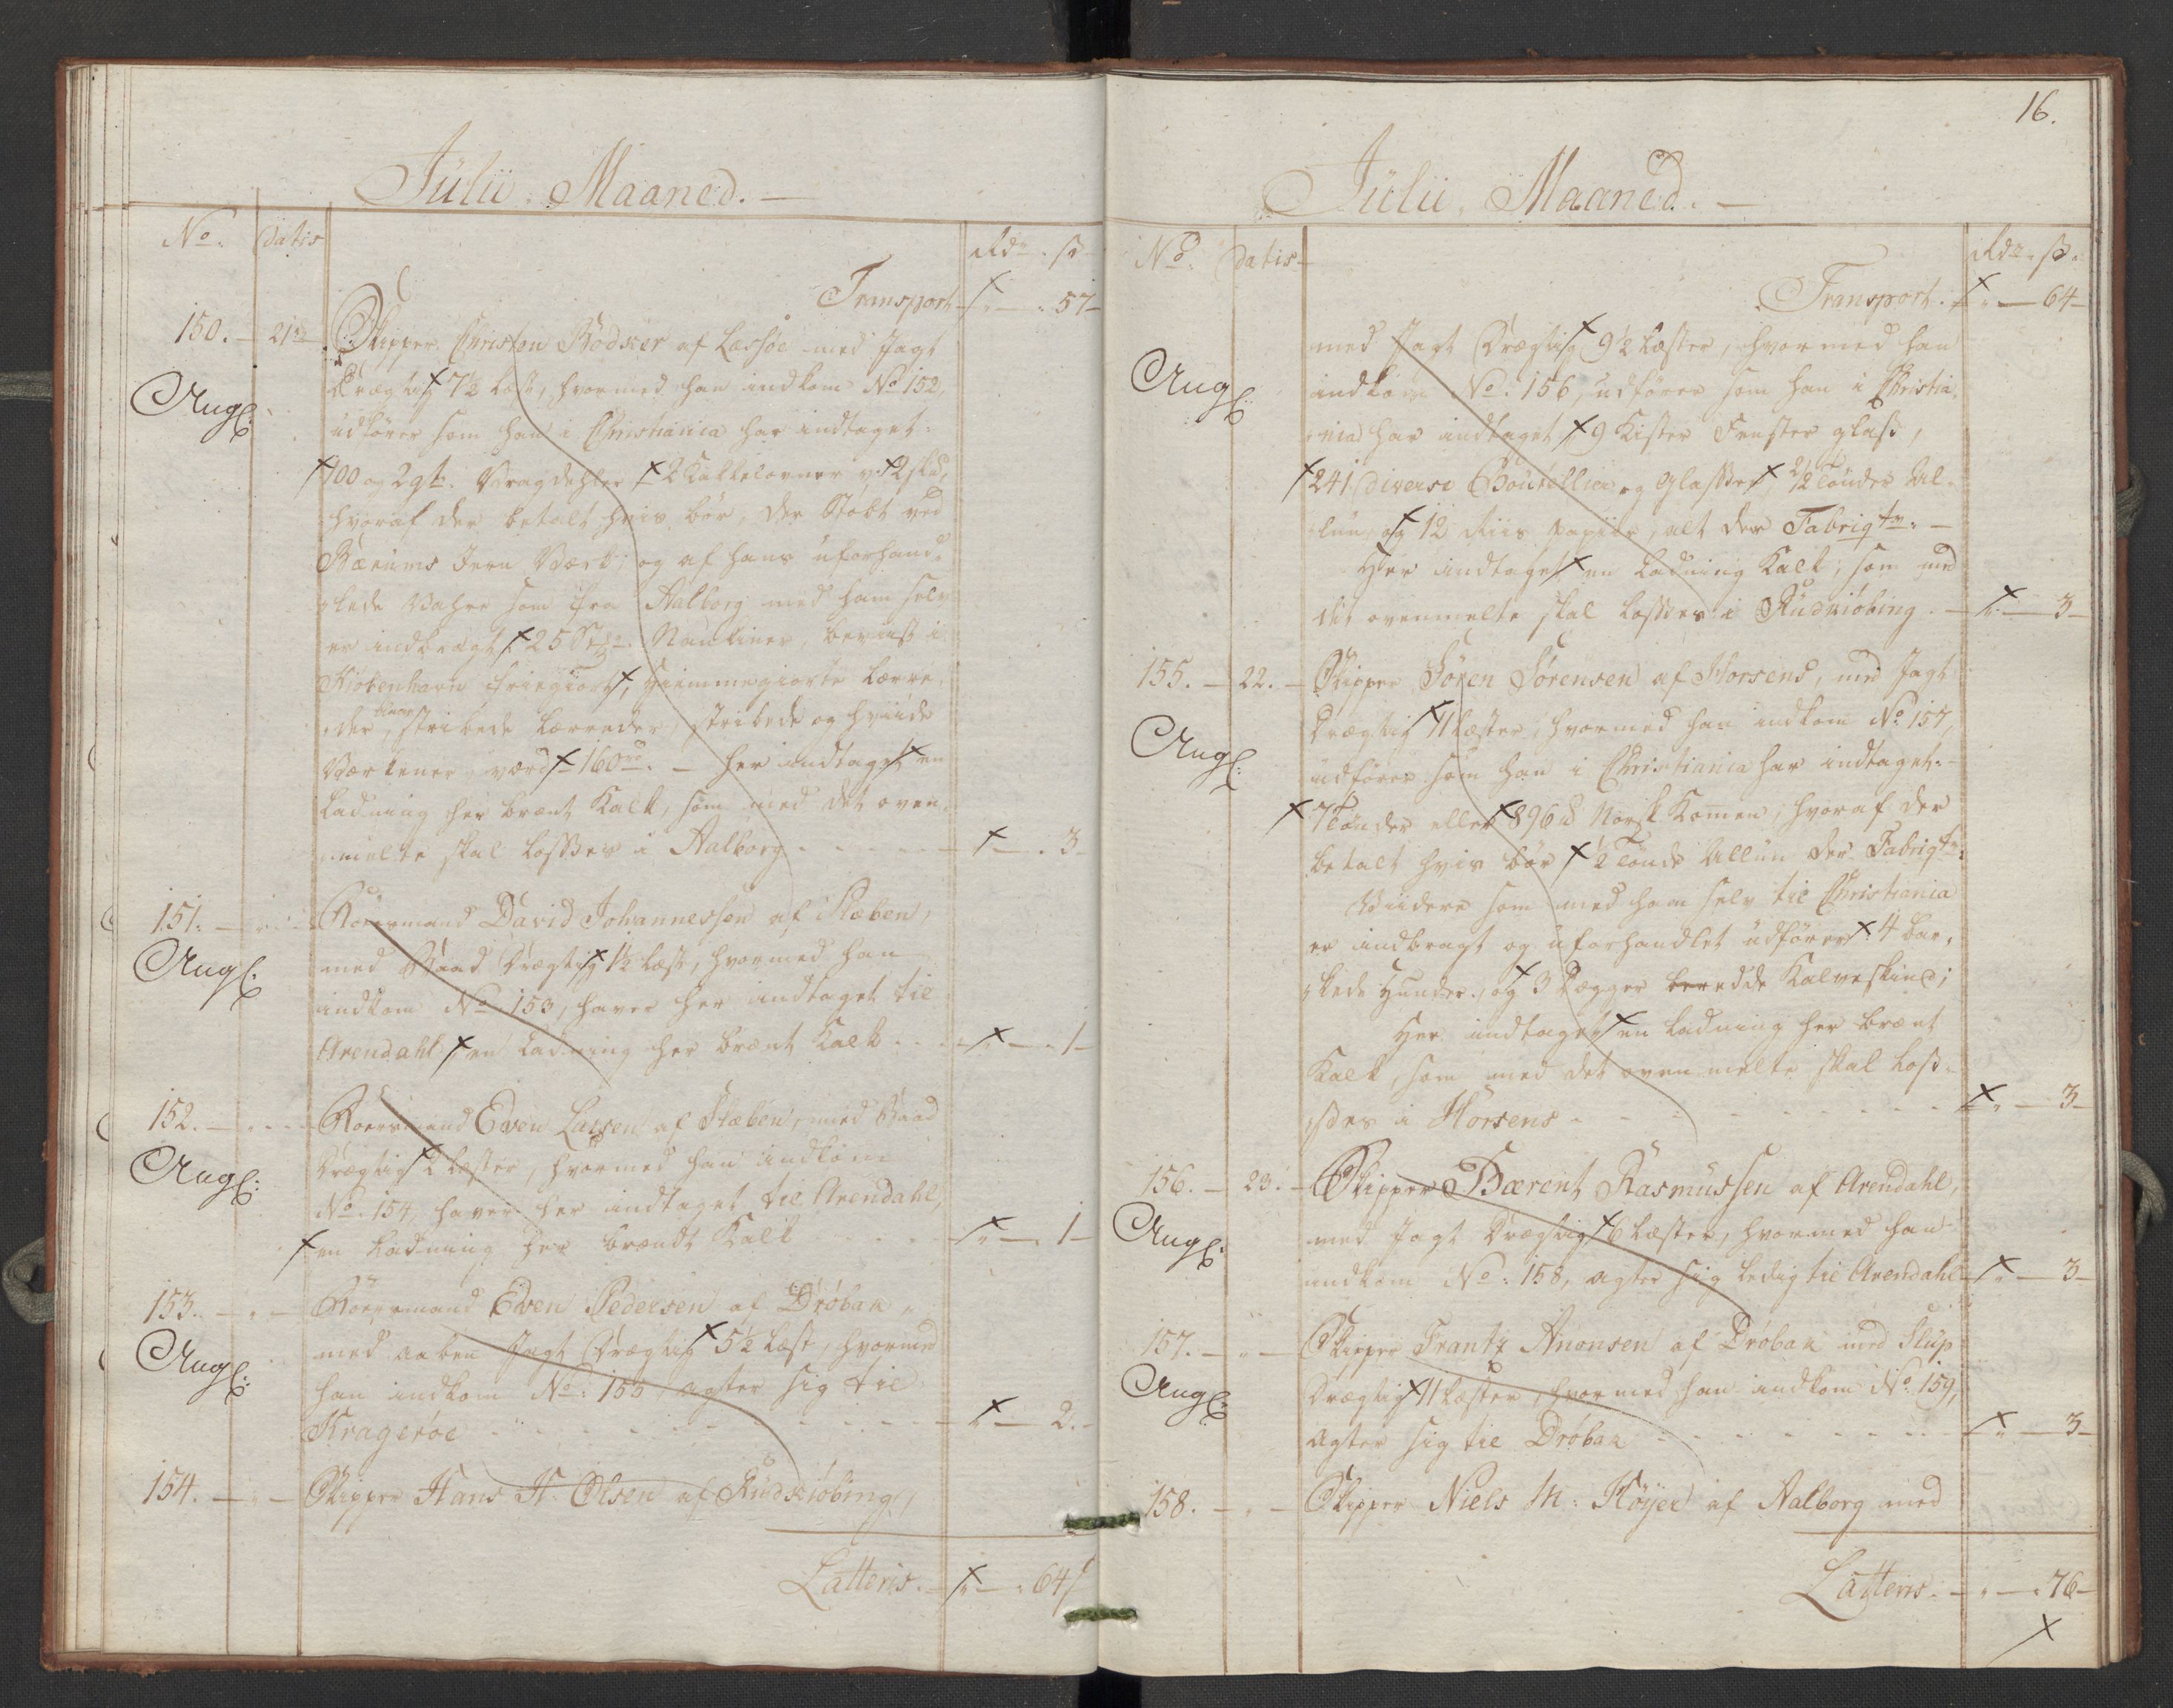 Julii Maaned. —
No. datis Rdr. ß
Transport — 57 —
150. — 21de — Skipper Christen Bødker af Læssøe med Jagt
drægtig 7½ Læst, hvormed han indkom No 152,
Angl:
udfører som han i Christiania har indtaget:
100 og 2 gt. Vragdehler 2 Kakkelovner
hvoraf der betalt hvis bør, der Støbt ved
Bærums Jern Værk; og af hans uforhand-
lede Vahre som fra Aalborg med ham selv
er indbragt 25 St. Nankiner, beviist i
Kiøbenhavn friegiort, hiemmegiorte Lærre-
der, blaae stribede Lærreder, stribede og hviide
Værkener, værd 160 rd. — her indtaget en
Ladning her brændt Kalk, som med det oven-
melte skal losses i Aalborg - - - - - — 3 —
151. — " — Roersmand David Johannessen af Stæben,
Angl:
med Baad drægtig 1½ Læst, hvormed han
indkom No 153, haver her indtaget til
Arendahl en Ladning her brændt Kalk - - — 1 —
152. — Roersmand Even Larsen af Stæben, med Baad
Angl:
drægtig 2 Læster, hvormed han indkom
No. 154, haver her indtaget til Arendahl,
en Ladning her brændt Kalk - - - — 1 —
153. — " — Roersmand Even Pedersen af Drøbak,
Angl:
med aaben Jagt drægtig 5½ Læst, hvormed
han indkom No: 155 agter sig til
Kragerøe - - - - - - - — 2. —
154. — " — Skipper Hans H. Olsen af Rudkiøbing,
Latteris. — " — 64
16.
Julii Maaned. —
No. datis — Rdr. ß.
Transport. " — 64 —
med Jagt drægtig 9½ Læster, hvormed han
Angl:
indkom No. 156, udfører som han i Christia-
nia har indtaget 9 Kister Fenster glass,
241 diverse Bouteillier og Glasser, 2½ Tønder Al-
lun, og 12 Riis Papiir, alt der Fabriqte. —
Her indtaget en Ladning Kalk, som med
det ovenmelte skal losses i Rudkiøbing. — " — 3 —
155. — 22. — Skipper Søren Sørensen af Horsens, med Jagt
Angl:
drægtig 11 Læster, hvormed han indkom No. 157,
udfører som han i Christiania har indtaget. —
7 Tønder eller 896 ℔ Norsk Komen, hvoraf der
betalt hvis bør ½ Tønde Allun der Fabriqte:
Viidere som med ham selv til Christiania
er indbragt og uforhandlet udfører 4 bar-
kede Huuder, og 3 Degger beredde Kalveskind;
Her indtaget en Ladning her brændt
Kalk, som med det ovenmelte skal los-
ses i Horsens - - - - - - " — 3 —
156. — 23. — Skipper Bærent Rasmussen af Arendahl,
Angl:
med Jagt drægtig 6 Læster, hvormed han
indkom No: 158, agter sig ledig til Arendahl — " — 3 —
157. — " — Skipper Frantz Anonsen af Drøbak med Slup
Angl:
drægtig 11 Læster, hvormed han indkom No. 159,
agter sig til Drøbak - - - - - - — " — 3 —
158. — " — Skipper Niels M: Høyer af Aalborg med
Latteris. — " — 76 —